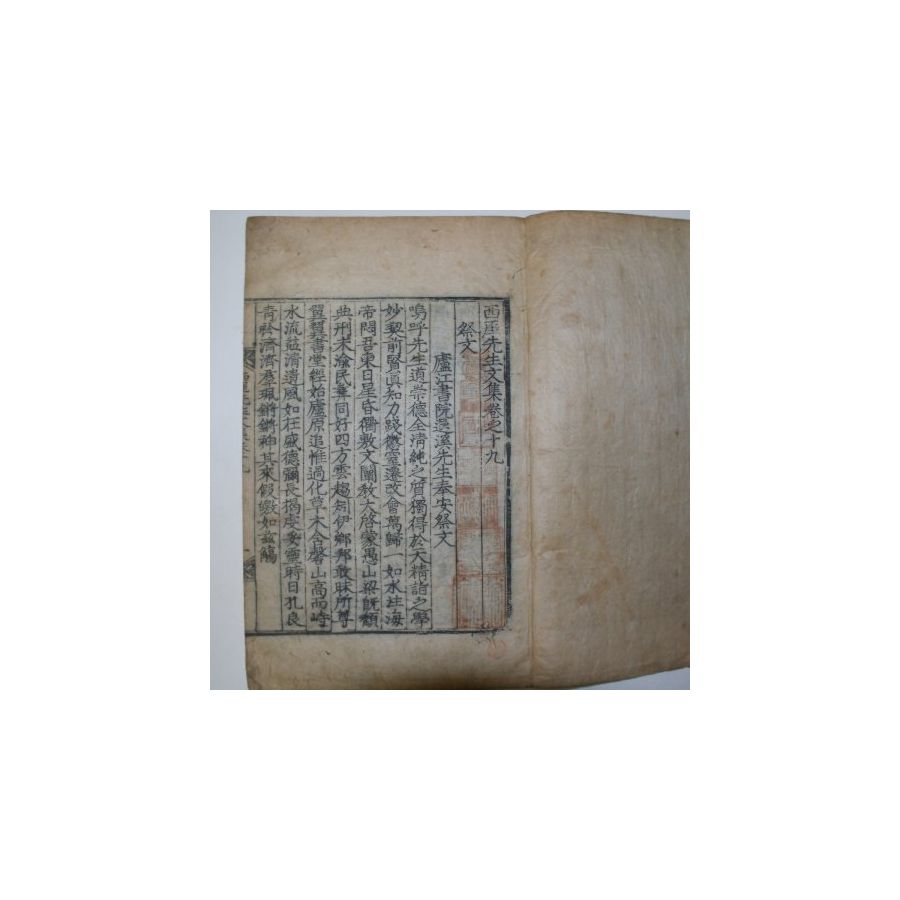 西厓先生文集卷之十九
祭文
廬江書院退溪先生奉安祭文
嗚呼先生道崇德全清純之質獨得於天精詣之學
妙契前賢眞知力踐徽蘊遷改會萬歸一如水注海
帝悶吾東日星昏獨敷文闡敎大啓蒙愚山梁旣頹
典刑未淪民彝同好四方雲趨矧伊鄕邦敢昧所尊
翼翼書堂經始廬原追惟過化草木含馨山高而峙
水流益清遺風如在盛德彌長揭虔妥靈時日孔良
靑衿濟濟羣珮鏘鏘神其來假歆如玆觴